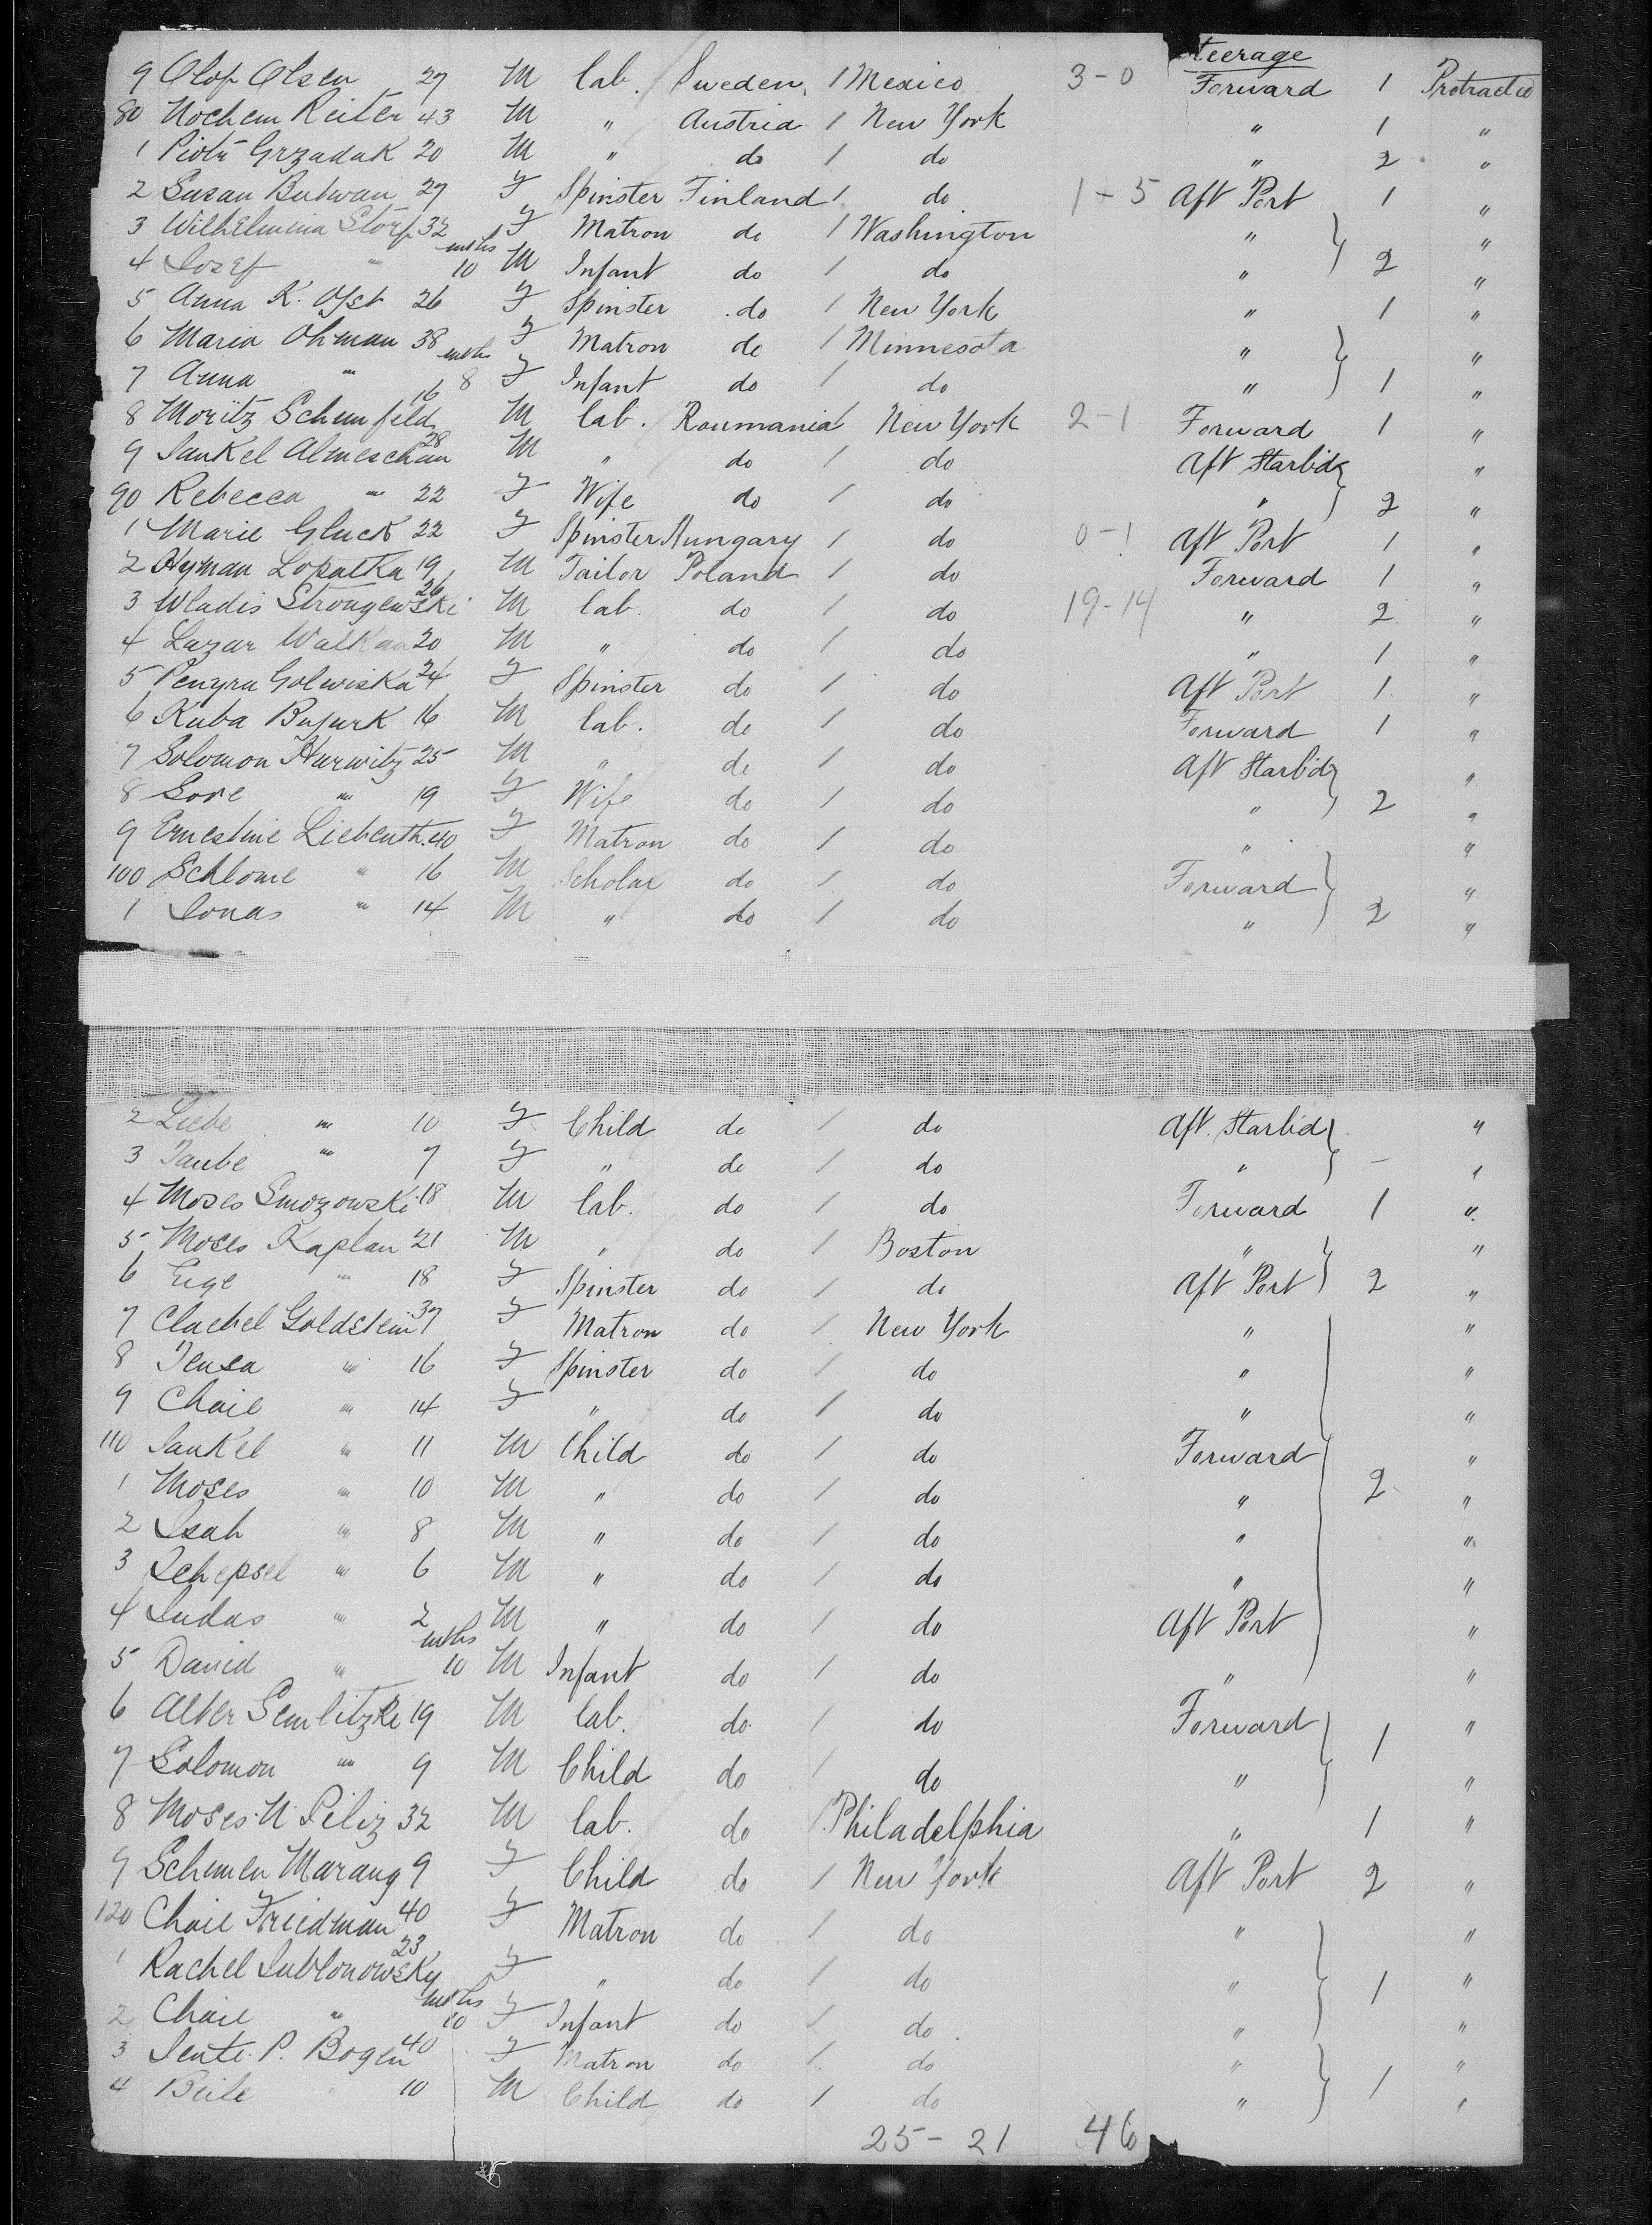 teerage
9 Olof Olsen 27 M lab. Sweden, 1 Mexico 3-0 Forward 1 Protracted
80 Nochem Reiter 43 M " Austria 1 New York " 1 "
1 Piotr Grzadak 20 M " do 1 do " 2 "
2 Susan Butwan 27 F Spinster Finland 1 do 1-5 Aft Port 1 "
3 Wilhelmina Storp 32 F Matron do 1 Washington " "
4 Josef " mths 10 M Infant do 1 do " 2 "
5 Anna K. Ofst 26 F Spinster do 1 New York " 1 "
6 Maria Ohman 38 F Matron do 1 Minnesota " "
7 Anna " mths 8 F Infant do 1 do " 1 "
8 Moritz Schunfeld 16 M lab. Roumania 1 New York 2-1 Forward 1 "
9 Jankel Almeschan 28 M " do 1 do Aft Starbd "
90 Rebecca " 22 F Wife do 1 do " 2 "
1 Marie Gluck 22 F Spinster Hungary 1 do 0-1 Aft Port 1 "
2 Hyman Lopatka 19 M Tailor Poland 1 do Forward 1 "
3 Wladis Strongewski 26 M lab. do 1 do 19-14 " 2 "
4 Lazar Walkan 20 M " do 1 do " 1 "
5 Penyra Golwiska 24 F Spinster do 1 do Aft Port 1 "
6 Kuba Bujurk 16 M lab. do 1 do Forward 1 "
7 Solomon Hurwitz 25 M " do 1 do Aft Starbd "
8 Sore " 19 F Wife do 1 do " 2 "
9 Ernestine Liebenth. 40 F Matron do 1 do " "
100 Schlome " 16 M Scholar do 1 do Forward "
1 Jonas " 14 M " do 1 do " 2 "
2 Liebe " 10 F Child do 1 do Aft. Starbd "
3 Taube " 7 F " do 1 do " - "
4 Moses Smozowski 18 M lab. do 1 do Forward 1 "
5 Moses Kaplan 21 M " do 1 Boston " "
6 Eige " 18 F Spinster do 1 do Aft Port 2 "
7 Claebel Goldstein 37 F Matron do 1 New York " "
8 Jensa " 16 F Spinster do 1 do " "
9 Chaie " 14 F " do 1 do " "
110 Jankel " 11 M Child do 1 do Forward "
1 Moses " 10 M " do 1 do " 2 "
2 Isah " 8 M " do 1 do " "
3 Schepsel " 6 M " do 1 do " "
4 Judas " 2 M " do 1 do Aft Port "
5 David " mths 10 M Infant do 1 do " "
6 Alter Semlitzki 19 M lab. do 1 do Forward "
7 Solomon " 9 M Child do 1 do " 1 "
8 Moses N. Piliz 32 M lab. do 1 Philadelphia " 1 "
9 Schmen Marang 9 F Child do 1 New York Aft Port 2 "
120 Chaie Friedman 40 F Matron do 1 do " "
1 Rachel Jublonowsky 23 F " do 1 do " 1 "
2 Chaie " mths 10 F Infant do 1 do " "
3 Jente P. Bogen 40 F Matron do 1 do " "
4 Beile " 10 M Child do 1 do " 1 "
25-21 46